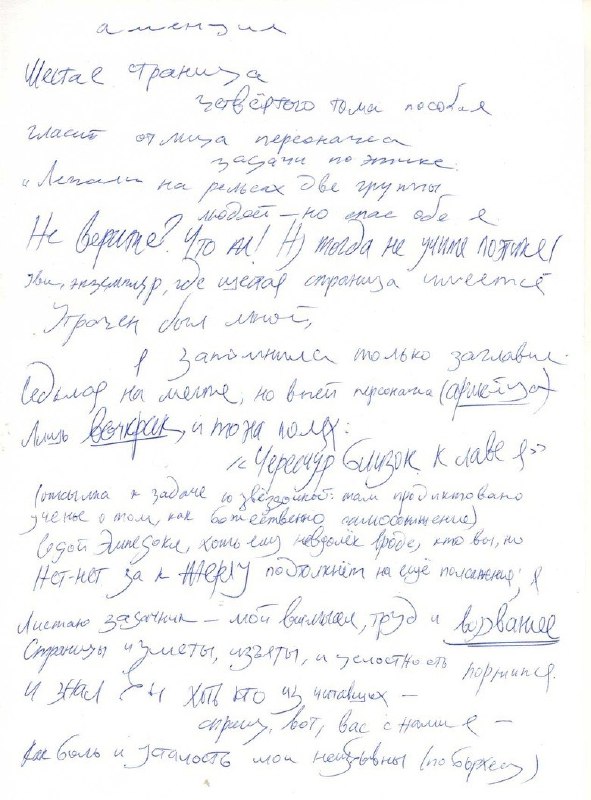 аменция
Шестая страница
четвёртого тома пособия
гласит от лица персонажа
задачи по этике:
"Лежали на рельсах две группы
людей – но спас обе я
Не верите? Что ж! Ну тогда не учите по этике!
экземпляр, где шестая страница имеется
Утрачен был мной,
я запомнила только заглавие.
Седьмая на месте, но в ней персонажа
Лишь и то на полях:
"Чересчур близок к лаве я"
(отсылка к задаче со звёздочкой: там продиктовано
ученье о том, как божественно самосожжение)
Седой Эмпедокл, хоть ему невдомёк вроде, кто вы, но
Нет-нет за к жерлу подтолкнёт на ещё положение; я
Листаю задачник – мой вымысел, труд и
Страницы измяты, изъяты, и целостность портится.
И знал бы хоть кто из читавших –
спрошу, вот, вас с нами я –
Как боль и усталость мои неизбывны (по Борхесу)